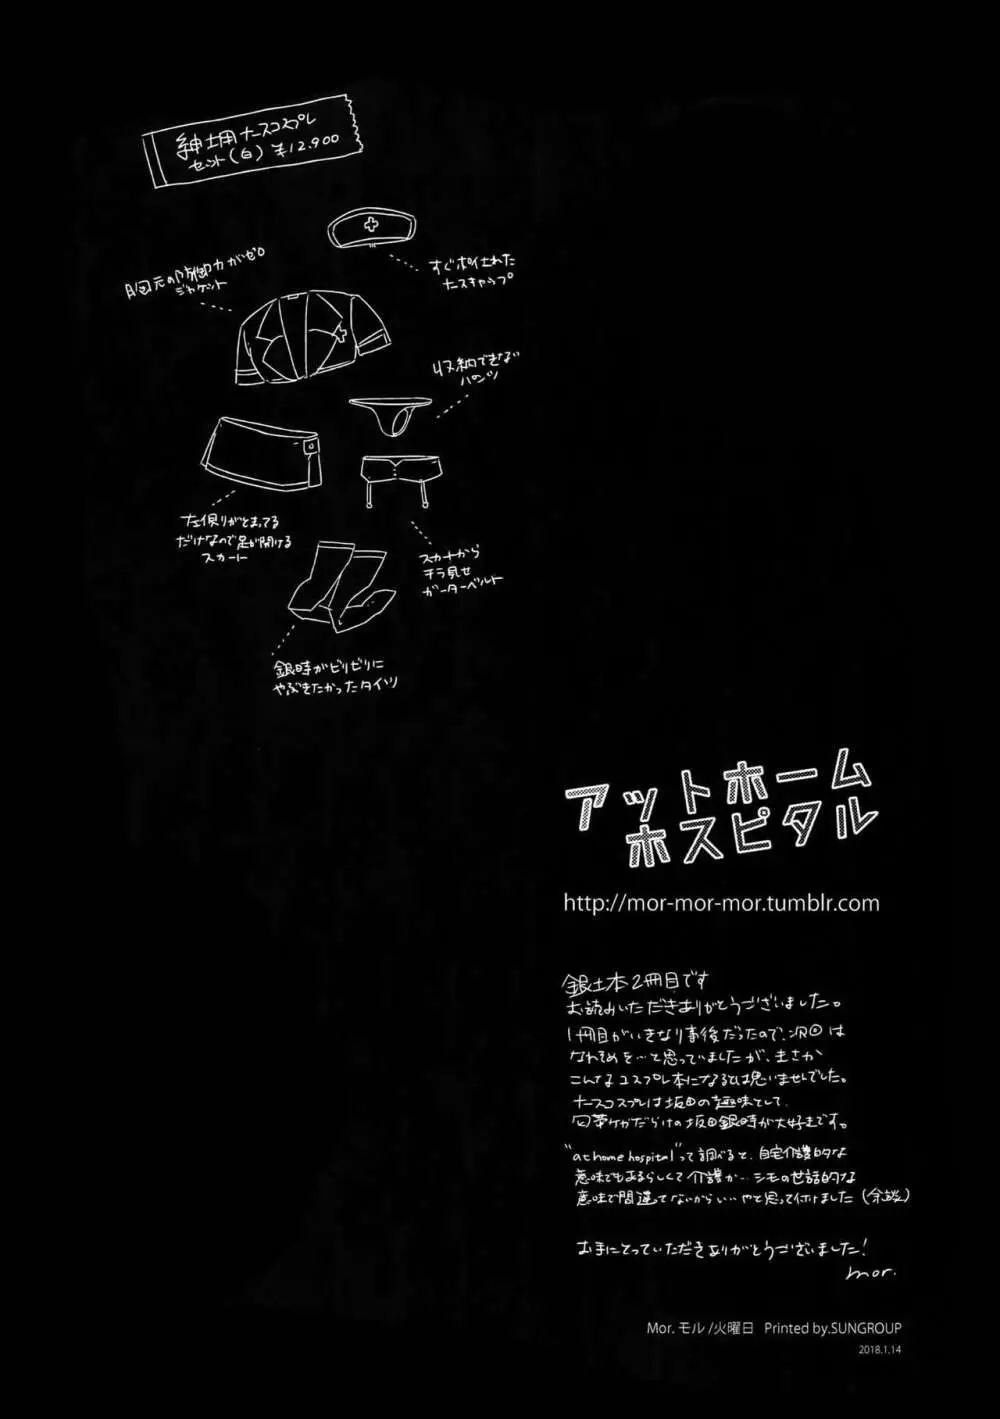 紳士用ナースコスプレ
セット(白) ¥12.900
すぐポイされた
ナースキャップ
胸元の防御力がゼロ
ジャケット
収納できない
パンツ
左側りがとまってる
だけなので足が開ける
スカート
スカートから
チラ見せ
ガーターベルト
銀時がビリビリに
やぶきたかったタイツ
アットホーム
ホスピタル
http://mor-mor-mor.tumblr.com
銀土本2冊目です
お読みいただきありがとうございました。
1冊目がいきなり事後だったので、次回は
なれそめを…と思っていましたが、まさか
こんなコスプレ本になるとは思いませんでした。
ナースコスプレは坂田の趣味として、
包帯ケガだらけの坂田銀時が大好きです。
"at home hospital"って調べると、自宅介護的な
意味でもあるらしくて介護か…シモの世話的な
意味で間違ってないからいいやと思って付けました(余談)
お手にとっていただきありがとうございました!
mor.
Mor. モル /火曜日 Printed by.SUNGROUP
2018.1.14